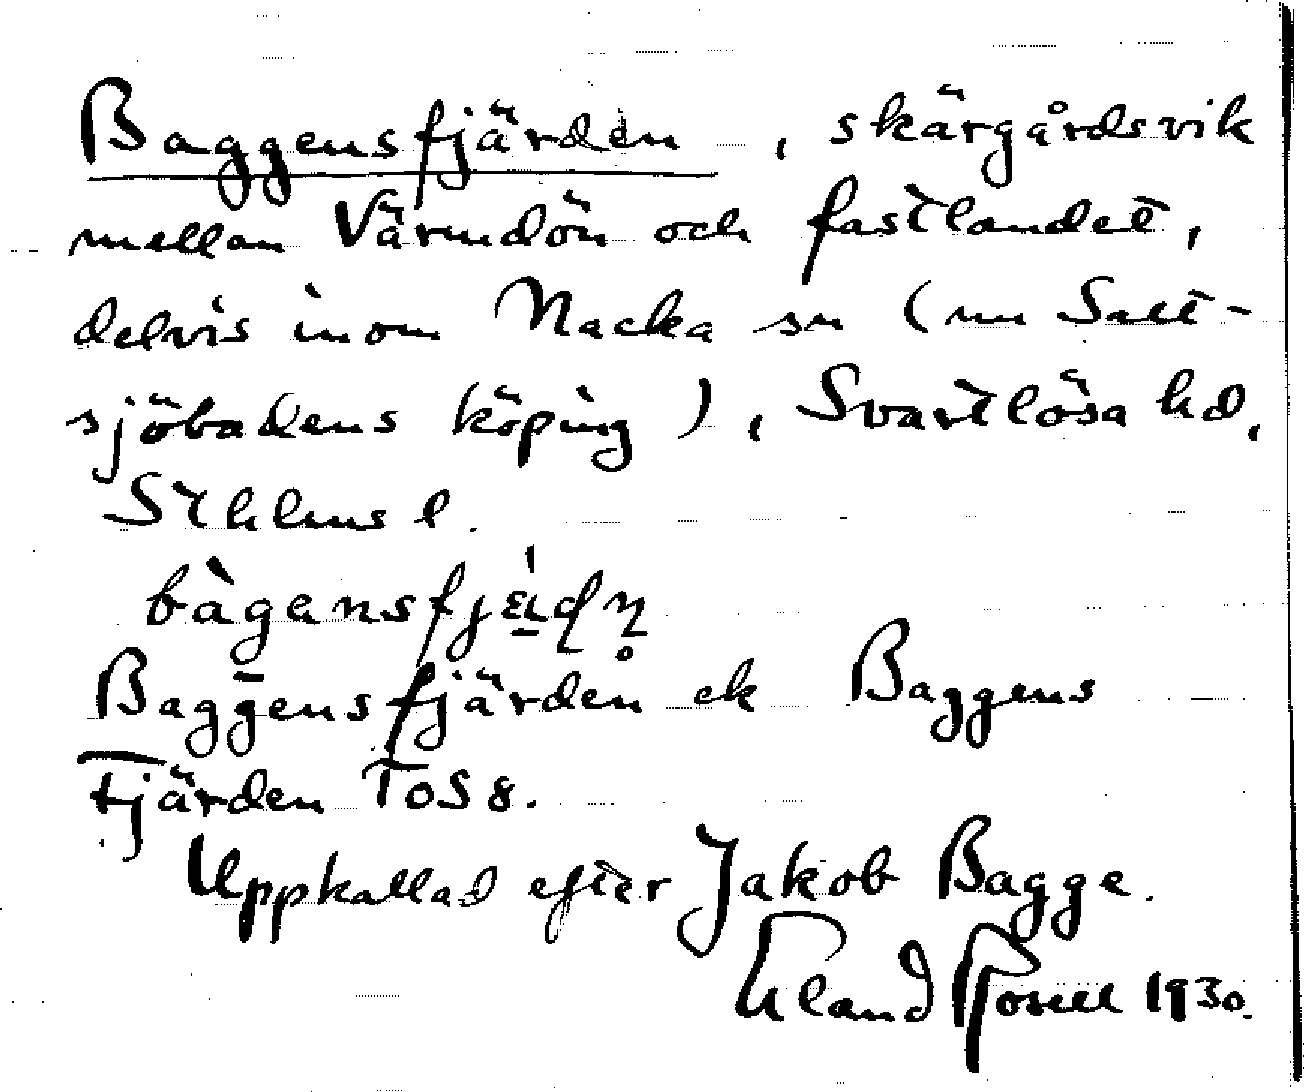 Baggensfjärden, skärgårdsvik
mellan Värmdön och fastlandet,
delvis inom Nacka sn (nu Salt-
sjöbadens köping), Svartlösa hd,
Sthlms l.
Baggensfjärden ek Baggens
Fjärden ToS 8.
Uppkallad efter Jakob Bagge.
Erland Rosell 1930.